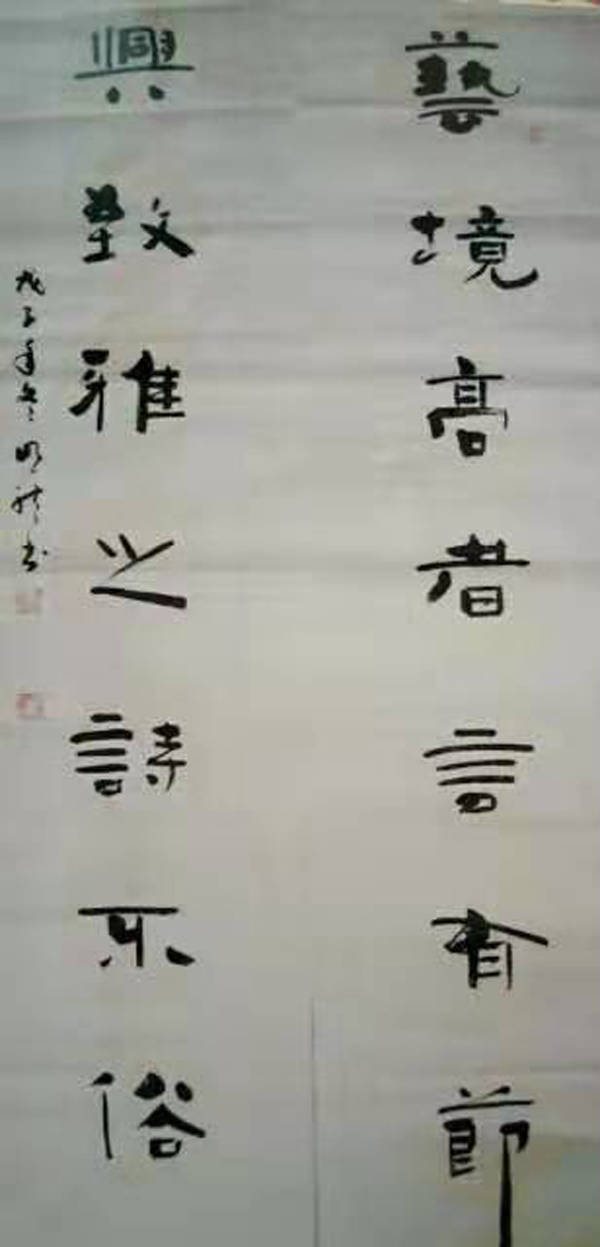 藝境高者言有節
興致雅之詩不俗
戊子年冬明祥书